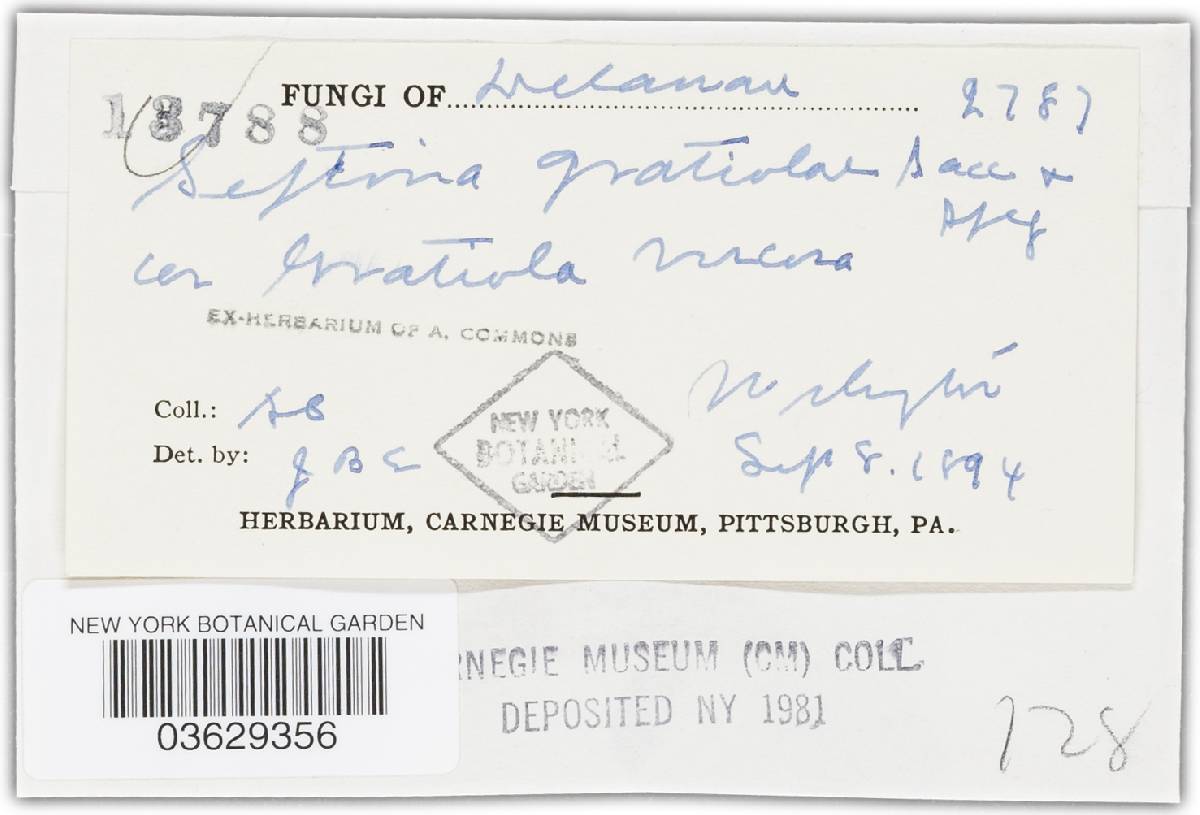 FUNGI OF Delaware 2787
13788
Septoria gratiolae Sacc &
Speg
on Gratiola viscosa
EX-HERBARIUM OF A. COMMONS
Coll.:
NEW YORK
BOTANICAL
GARDEN
Det. by: J B E
Sept 8. 1894
HERBARIUM, CARNEGIE MUSEUM, PITTSBURGH, PA.
NEW YORK BOTANICAL GARDEN
03629356
RNEGIE MUSEUM (CM) COLL.
DEPOSITED NY 1981
728